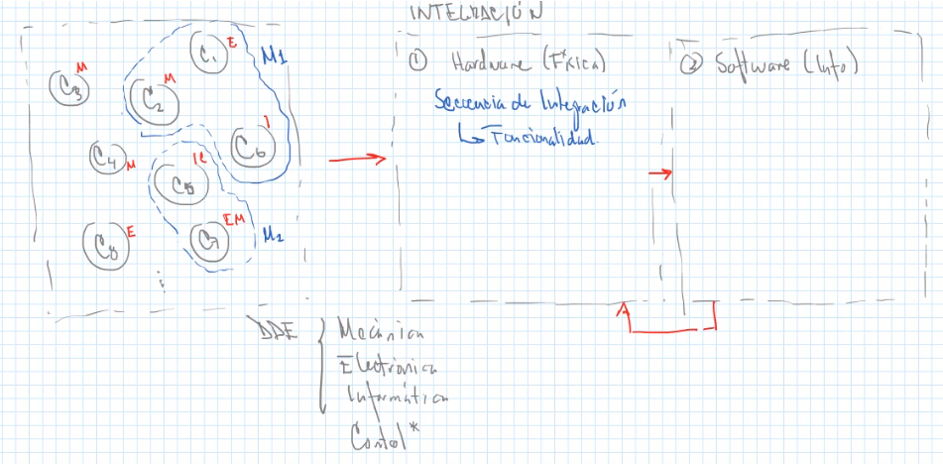 INTEGRACIÓN
C1 E
M1
C3 M
C2 M
C6 I
C4 M
C5
C7 EM
M2
C8 E
① Hardware (Física)
Secuencia de Integración
↳ Funcionalidad.
② Software (Info)
DDE
Mecánica
Electrónica
Informática
Control*